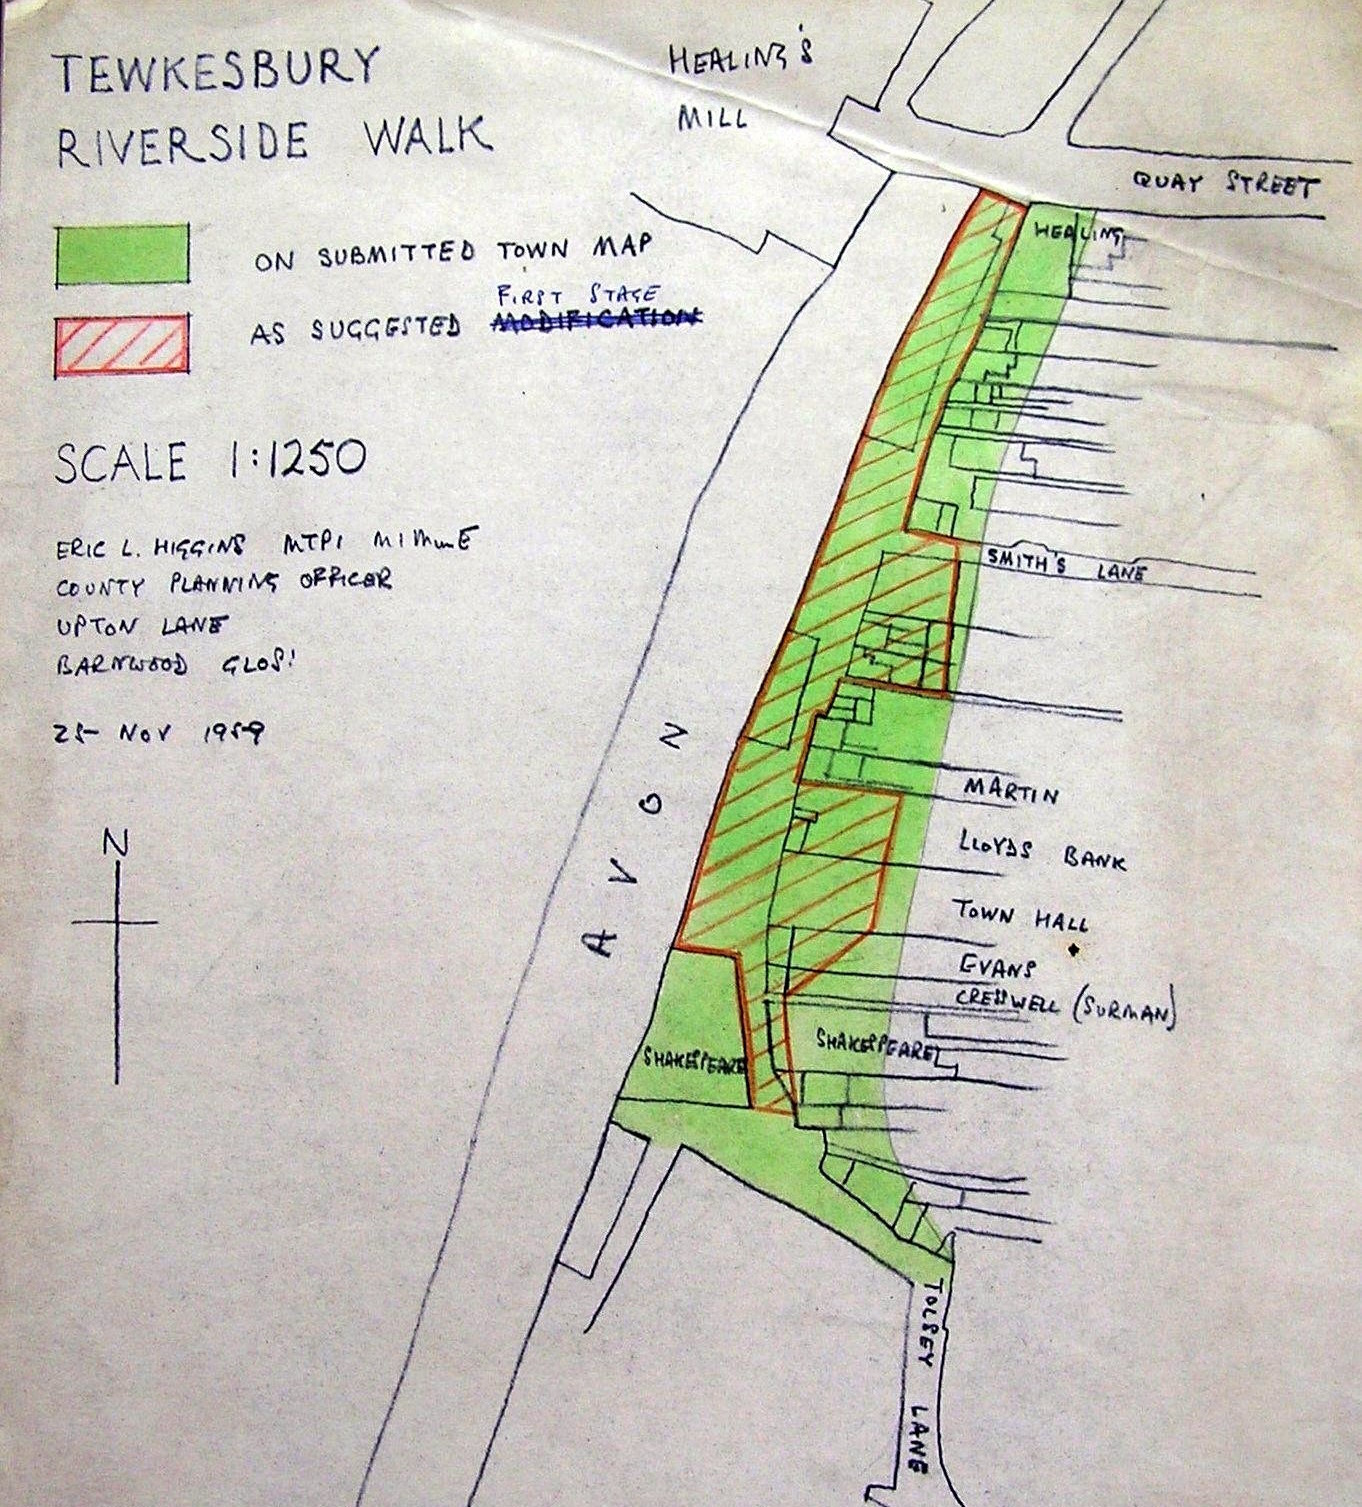 TEWKESBURY
RIVERSIDE WALK
ON SUBMITTED TOWN MAP
FIRST STAGE
AS SUGGESTED MODIFICATION
SCALE 1:1250
ERIC L. HIGGINS MTPI
COUNTY PLANNING OFFICER
UPTON LANE
BARNWOOD GLOS!
25 NOV 1959
N
HEALING'S
MILL
QUAY STREET
HEALING
SMITH'S LANE
AVON
MARTIN
LLOYDS BANK
TOWN HALL
EVANS
CRESSWELL (SURMAN)
SHAKESPEARE
SHAKESPEARE
TOLSEY LANE